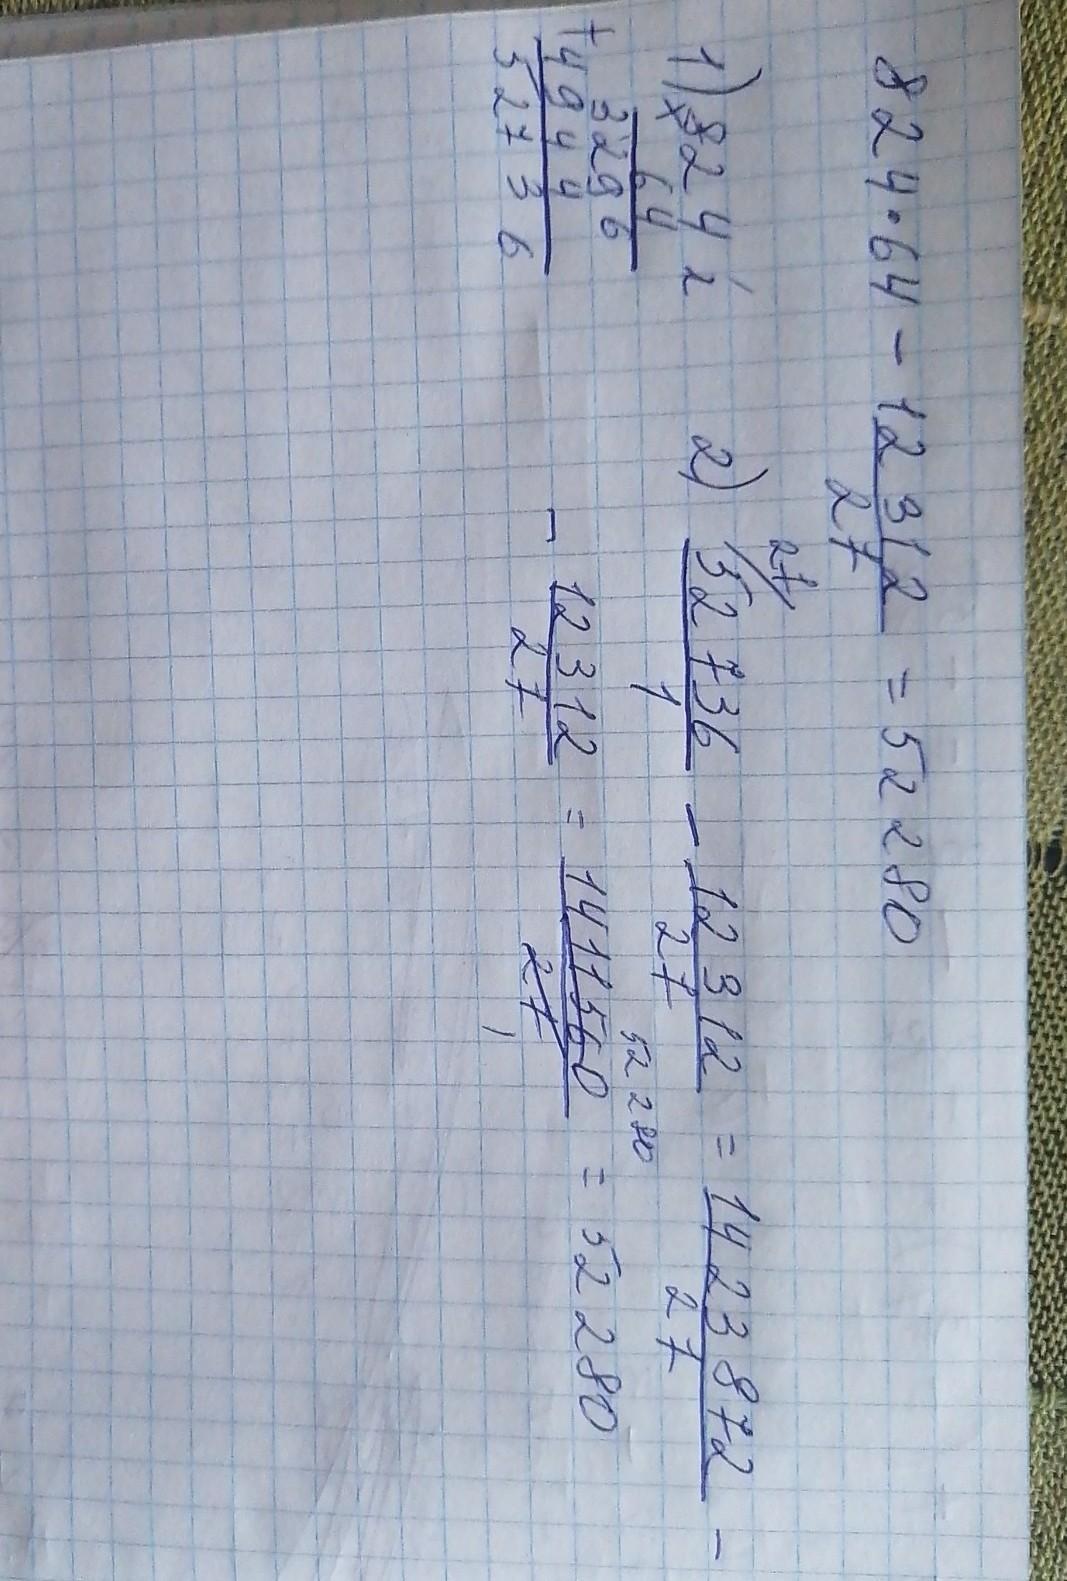 824·64 - 12312/27 = 52280
1) ×824
64
3296
+4944
52736
2) 27/ 52736/1 - 12312/27 = 1423872/27 -
- 12312/27 = 1411560/27 = 52280
52280